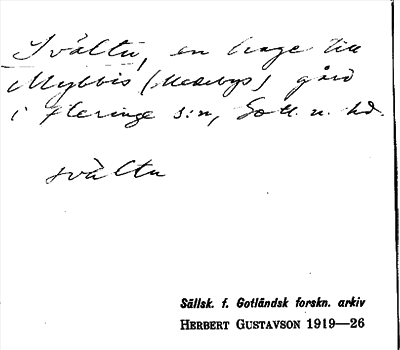 Svältu, en hage till
Mybbis (Medebys) gård
i Fleringe s:n, Gotl. n. hd.
svältu
Sällsk. f. Gotländsk forskn. arkiv
HERBERT GUSTAVSON 1919—26